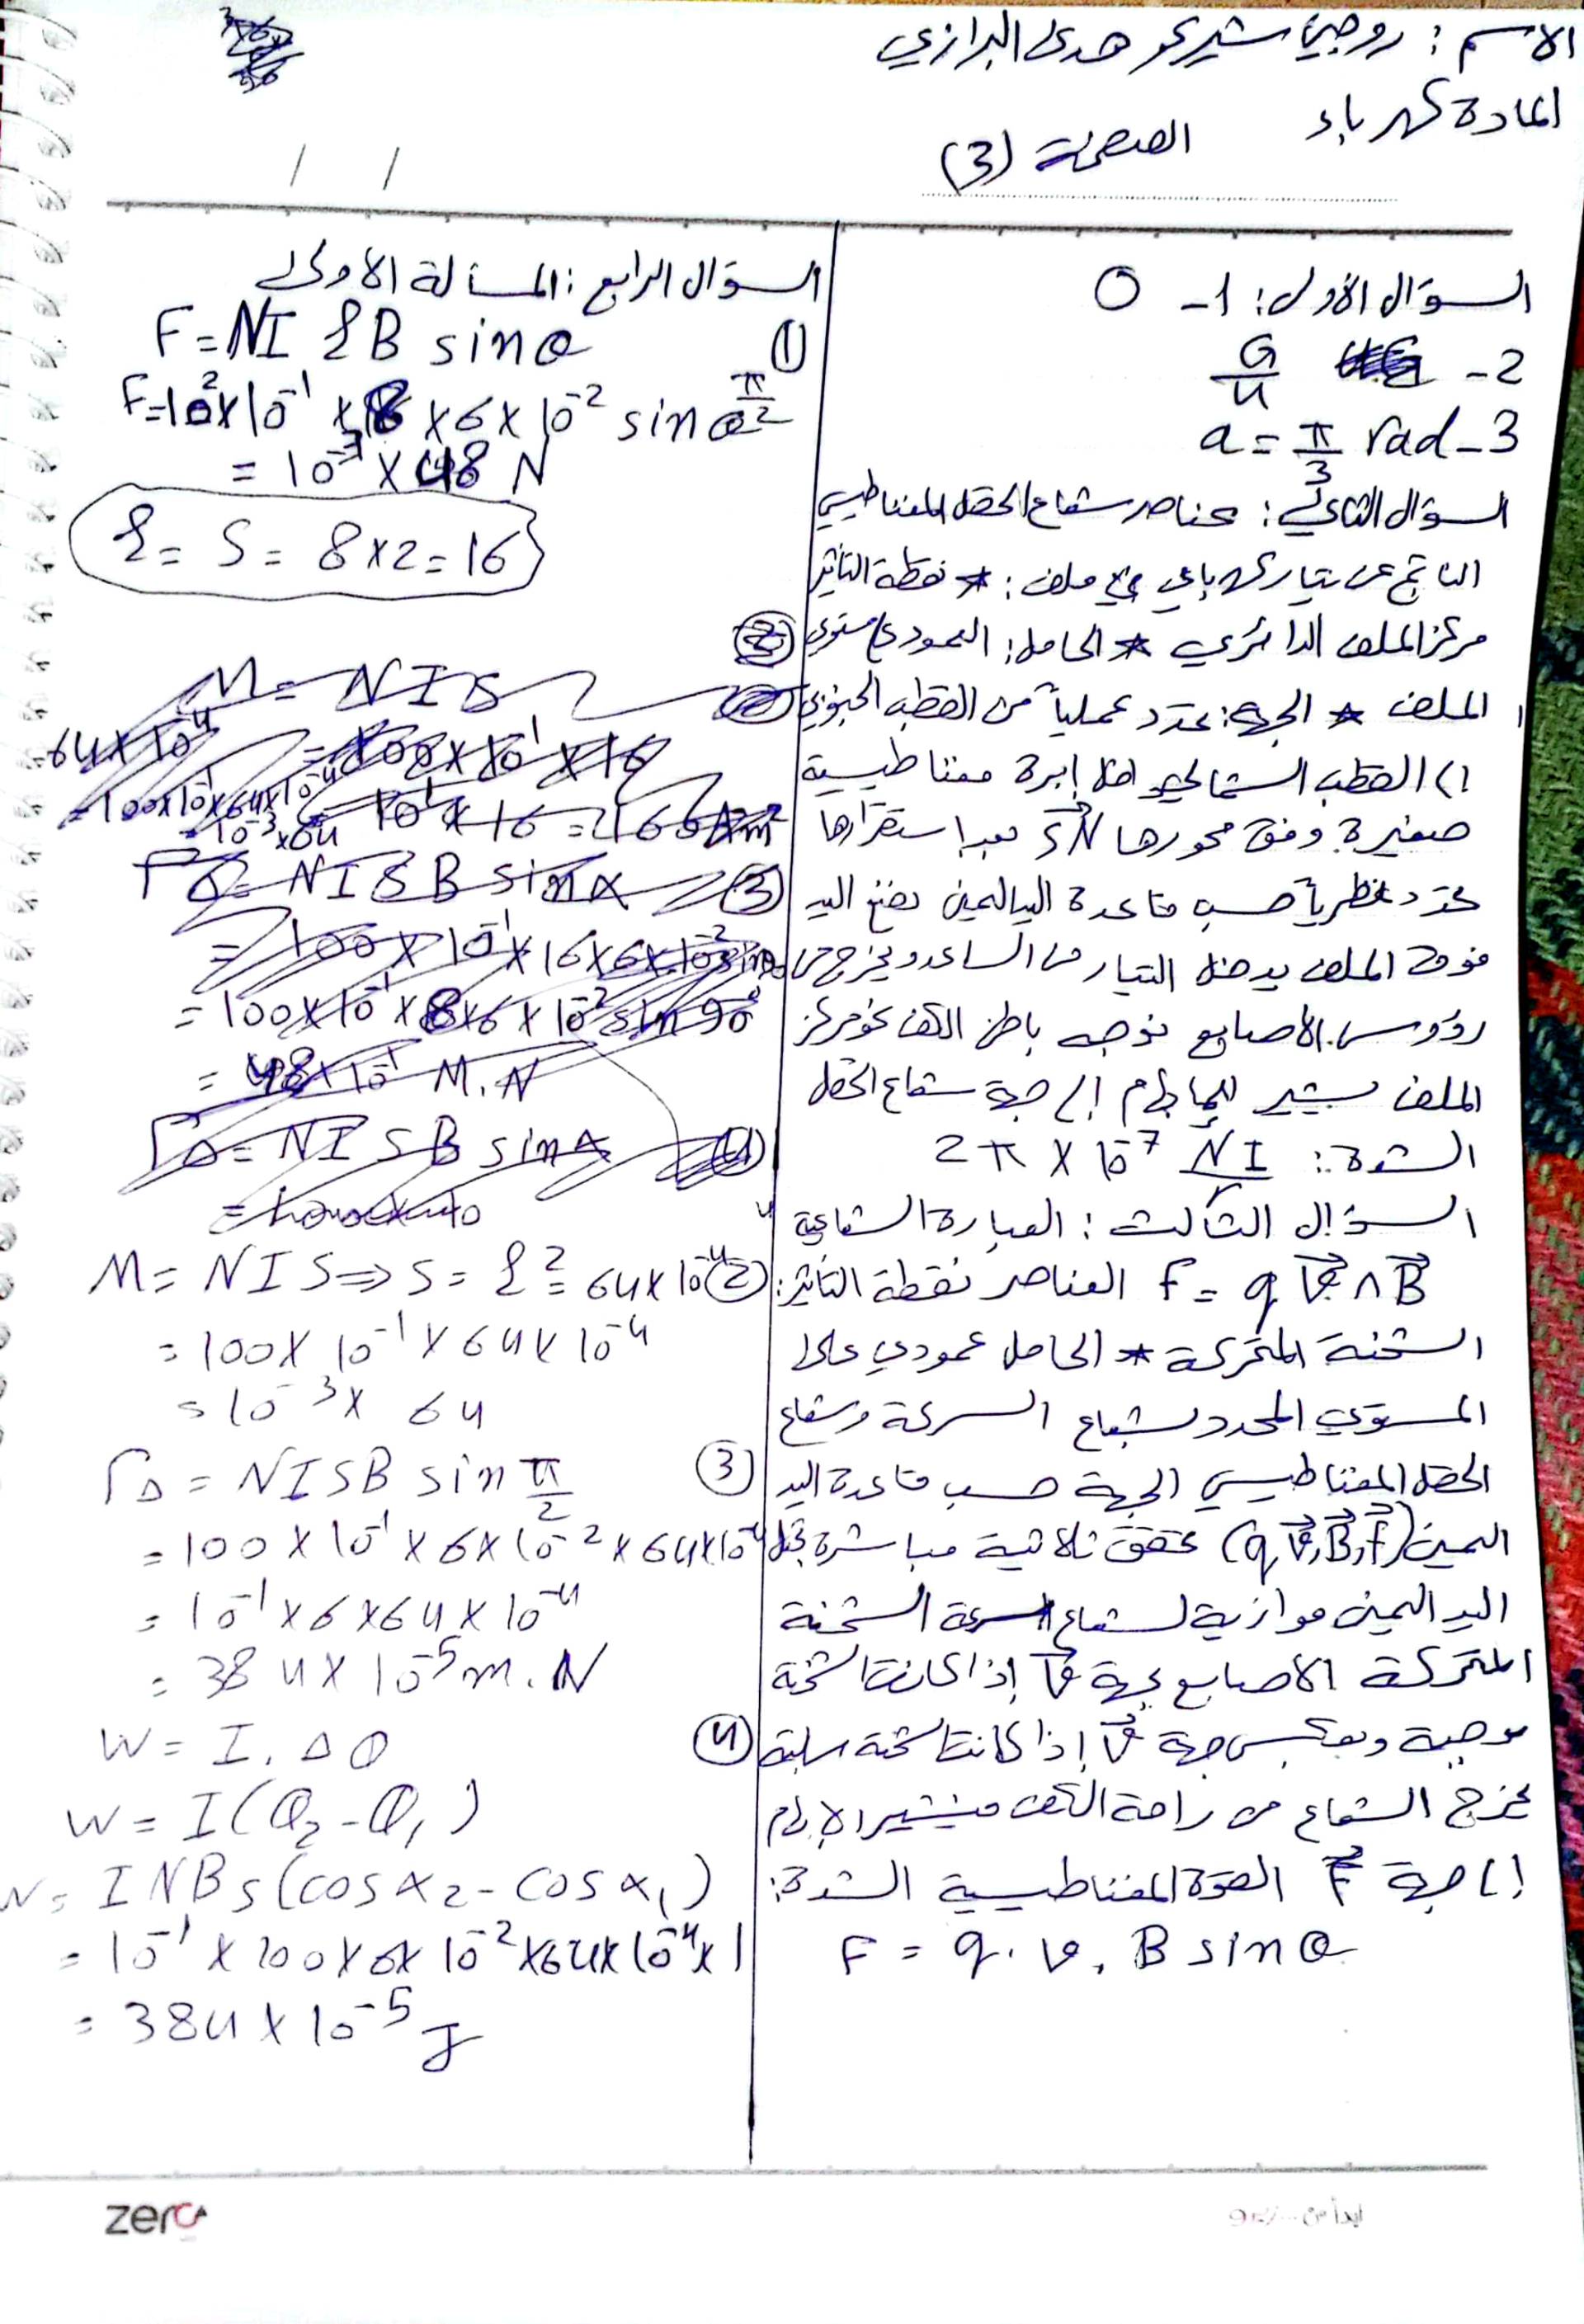 الاسم : روجين شيرو هدى البرازي
المادة كهرباء
الصفحة (3)
السؤال الأول: 1- O
2- G/4
3- a = π/3 rad
السؤال الثاني: عناصر شعاع الحقل المغناطيسي
الناتج عن تيار كهربائي في ملف : * نقطة التأثير
مركز الملف الدائري * الحامل: العمودي على مستوي
الملف * الجهة: تحدد عملياً من القطب الجنوبي
إلى القطب الشمالي لإبرة مغناطيسية
صغيرة وفق محورها SN بعد استقرارها
تحدد نظرياً حسب قاعدة اليد اليمنى نضع اليد
فوق الملف يدخل التيار من الساعد ويخرج من
رؤوس الأصابع نوجه باطن الكف نحو مركز
الملف يشير الإبهام إلى جهة شعاع الحقل
الشدة: 2π × 10⁻⁷ NI/r
السؤال الثالث : العبارة الشعاعية
F = q V ∧ B العناصر نقطة التأثير:
الشحنة المتحركة * الحامل عمودي على
المستوي المحدد بشعاع السرعة وشعاع
الحقل المغناطيسي الجهة حسب قاعدة اليد
اليمنى (qV, B, F) تحقق ثلاثية مباشرة نجعل
اليد اليمنى موازية لشعاع سرعة الشحنة
المتحركة الأصابع بجهة V إذا كانت الشحنة
موجبة وبعكس جهة V إذا كانت الشحنة سالبة
يخرج الشعاع من راحة الكف فيشير الإبهام
إلى جهة F القوة المغناطيسية الشدة:
F = q . v . B sin θ
السؤال الرابع : المسألة الأولى
① F = NI ℓ B sin θ
F = 10² × 10⁻¹ × 8 × 6 × 10⁻² sin π/2
= 10⁻³ × 48 N
ℓ = S = 8 × 2 = 16
M = NIS
= 100 × 10⁻¹ × 16
64 × 10⁻⁴
= 100 × 10⁻¹ × 64 × 10⁻⁴
= 10⁻³ × 64
③ Γ∆ = NISB sin α
= 100 × 10⁻¹ × 16 × 6 × 10⁻²
= 100 × 10⁻¹ × 8 × 6 × 10⁻² sin 90
= 48 × 10⁻¹ M.N
④ Γ∆ = NISB sin α
② M = NIS ⇒ S = ℓ² = 64 × 10⁻⁴
= 100 × 10⁻¹ × 64 × 10⁻⁴
= 10⁻³ × 64
③ Γ∆ = NISB sin π/2
= 100 × 10⁻¹ × 6 × 10⁻² × 64 × 10⁻⁴
= 10⁻¹ × 6 × 64 × 10⁻⁴
= 384 × 10⁻⁵ m.N
④ W = I . ∆Φ
W = I (Φ₂ - Φ₁)
W = INBS (cos α₂ - cos α₁)
= 10⁻¹ × 100 × 6 × 10⁻² × 64 × 10⁻⁴ × 1
= 384 × 10⁻⁵ J
zero